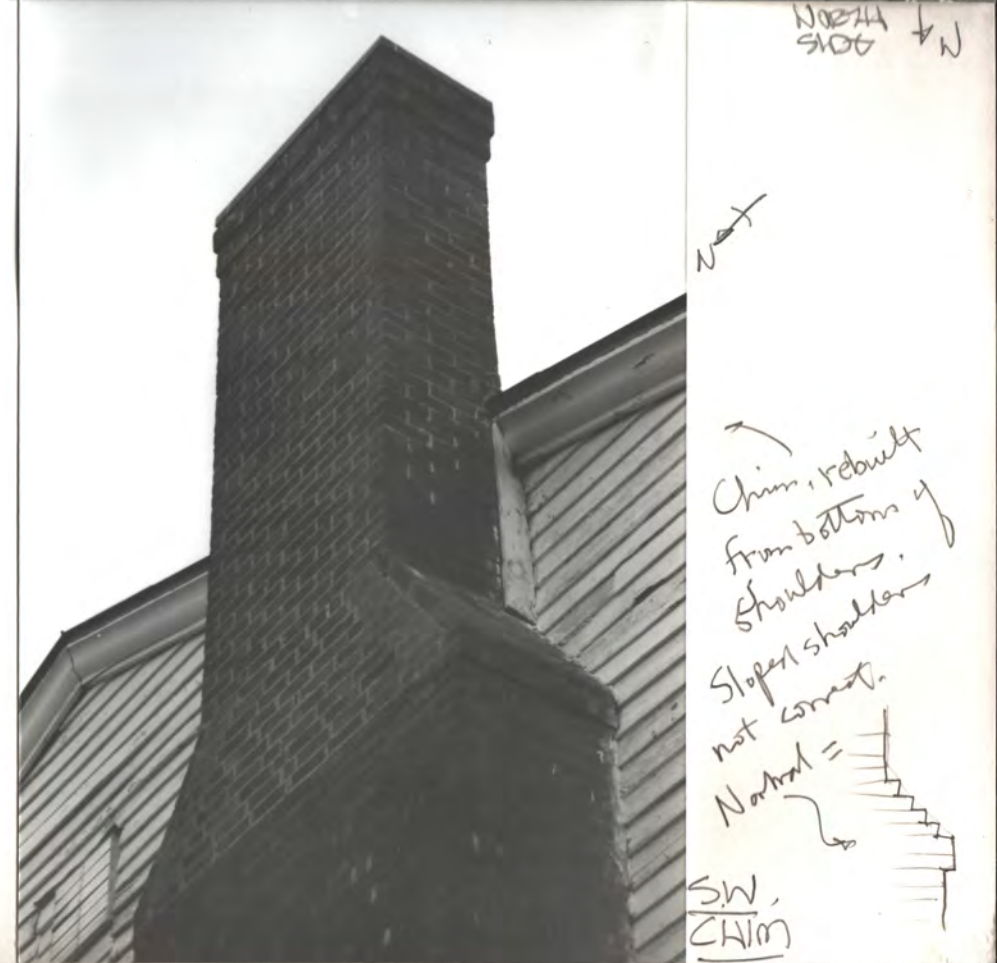 NORTH
SIDE
N
Not
Chim. rebuilt
from bottom of
shoulders.
Sloped shoulder
not correct.
Normal =
S.W.
CHIM